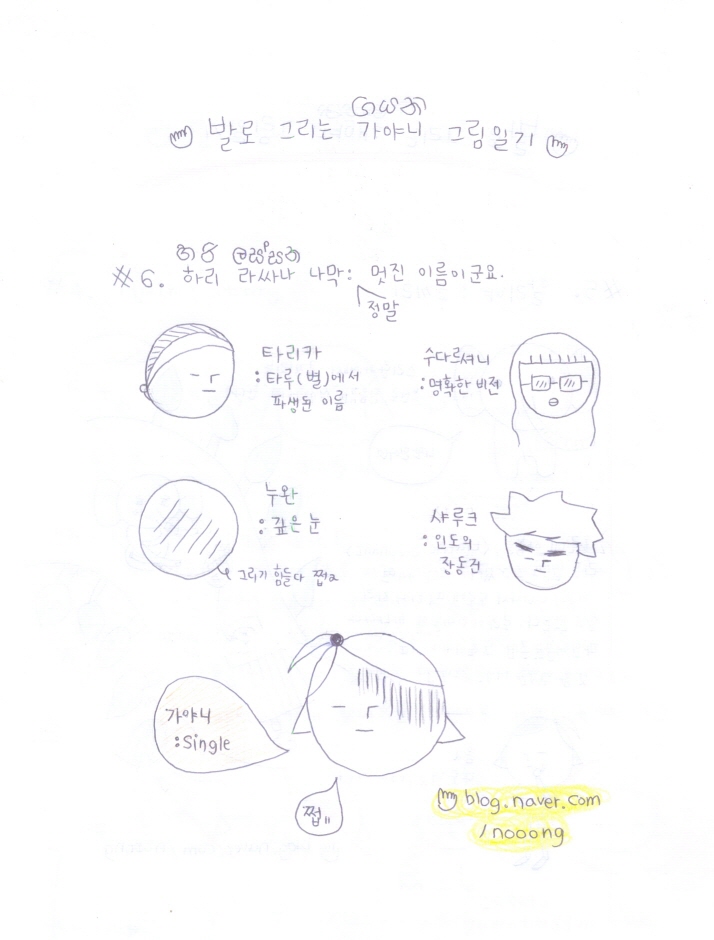 ගයනි
발로 그리는 가야니 그림일기
හරි ලස්සන
#6. 하리 라싸나 나막: 멋진 이름이군요.
정말
타리카
:타루(별)에서
파생된 이름
수다르셔니
:명확한 비전
누완
:깊은 눈
그리기 힘들다 쩝2
샤루크
:인도의
장동건
가야니
:Single
쩝"
blog.naver.com
/nooong